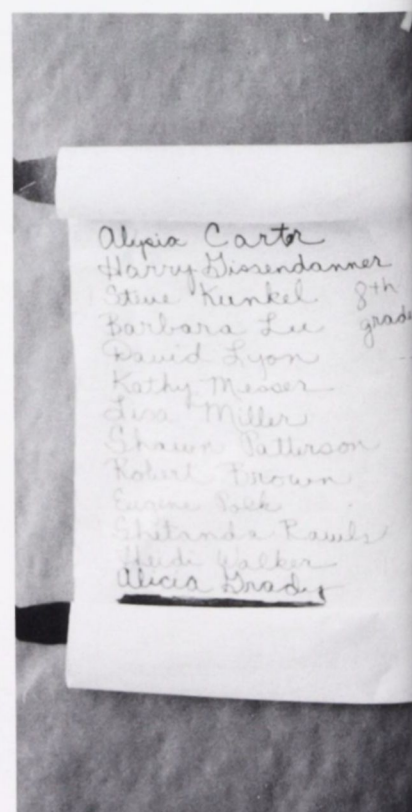 Alysia Carter
Harry Gissendanner
Steve Kunkel
8th
Barbara Lee
grade
David Lyon
Kathy Messer
Lisa Miller
Shawn Patterson
Robert Brown
Eugene
Shitanda Rawls
Heidi Walker
Alicia Grady